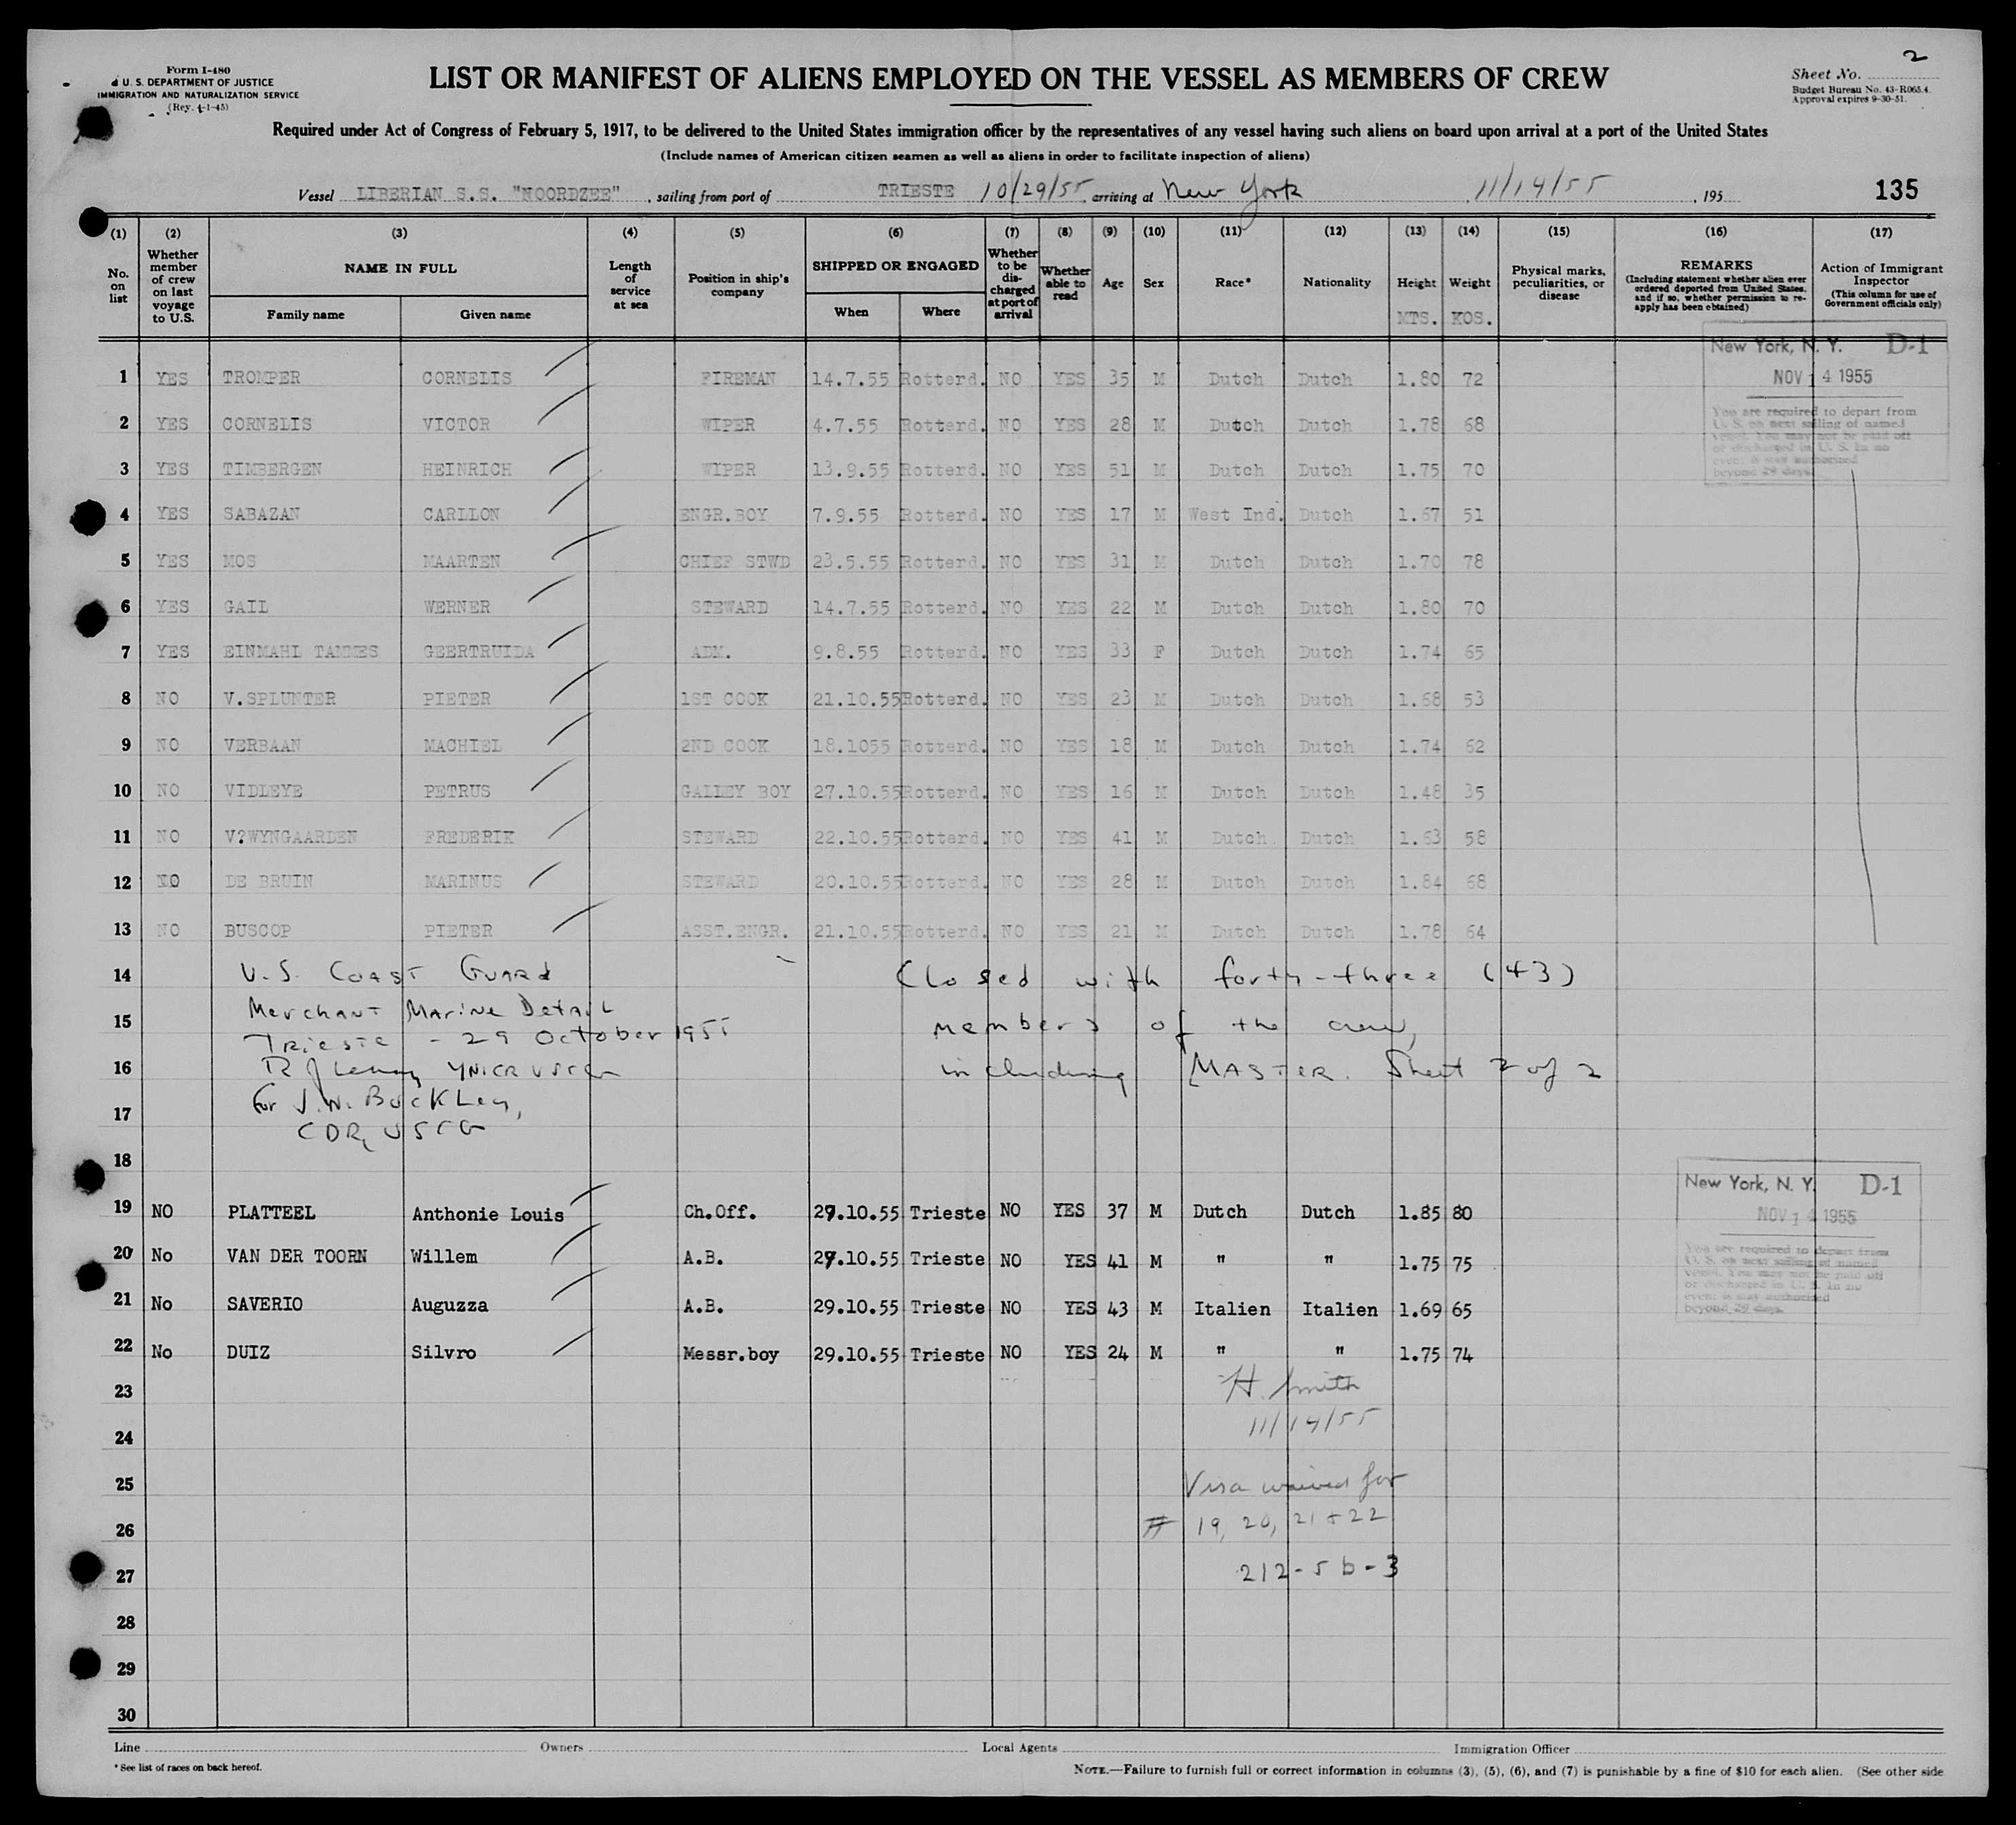 Form I-480
U. S. DEPARTMENT OF JUSTICE
IMMIGRATION AND NATURALIZATION SERVICE
(Rev. 4-1-45)
LIST OR MANIFEST OF ALIENS EMPLOYED ON THE VESSEL AS MEMBERS OF CREW
2
Sheet No.
Budget Bureau No. 43-R065.4.
Approval expires 9-30-51.
Required under Act of Congress of February 5, 1917, to be delivered to the United States immigration officer by the representatives of any vessel having such aliens on board upon arrival at a port of the United States
(Include names of American citizen seamen as well as aliens in order to facilitate inspection of aliens)
Vessel LIBERIAN S.S. "NOORDZEE", sailing from port of TRIESTE 10/29/55, arriving at New York 11/14/55, 195 135
(1) (2) (3) (4) (5) (6) (7) (8) (9) (10) (11) (12) (13) (14) (15) (16) (17)
No. on list
Whether member of crew on last voyage to U.S.
NAME IN FULL
Family name Given name
Length of service at sea
Position in ship's company
SHIPPED OR ENGAGED
When Where
Whether to be discharged at port of arrival
Whether able to read
Age
Sex
Race*
Nationality
Height MTS.
Weight KOS.
Physical marks, peculiarities, or disease
REMARKS
(Including statement whether alien ever ordered deported from United States, and if so, whether permission to reapply has been obtained)
Action of Immigrant Inspector
(This column for use of Government officials only)
New York, N. Y. D-1
NOV 14 1955
You are required to depart from
U. S. on next sailing of named
vessel. You may not be paid off
or discharged in U. S. In no
event is stay authorized
beyond 29 days.
1 YES TROMPER CORNELIS FIREMAN 14.7.55 Rotterd. NO YES 35 M Dutch Dutch 1.80 72
2 YES CORNELIS VICTOR WIPER 4.7.55 Rotterd. NO YES 28 M Dutch Dutch 1.78 68
3 YES TIMBERGEN HEINRICH WIPER 13.9.55 Rotterd. NO YES 51 M Dutch Dutch 1.75 70
4 YES SABAZAN CARLLON ENGR.BOY 7.9.55 Rotterd. NO YES 17 M West Ind. Dutch 1.67 51
5 YES MOS MAARTEN CHIEF STWD 23.5.55 Rotterd. NO YES 31 M Dutch Dutch 1.70 78
6 YES GAIL WERNER STEWARD 14.7.55 Rotterd. NO YES 22 M Dutch Dutch 1.80 70
7 YES EINMAHL TAMMES GEERTRUIDA ADM. 9.8.55 Rotterd. NO YES 33 F Dutch Dutch 1.74 65
8 NO V.SPLUNTER PIETER 1ST COOK 21.10.55 Rotterd. NO YES 23 M Dutch Dutch 1.68 53
9 NO VERBAAN MACHIEL 2ND COOK 18.1055 Rotterd. NO YES 18 M Dutch Dutch 1.74 62
10 NO VIDLEYE PETRUS GALLEY BOY 27.10.55 Rotterd. NO YES 16 M Dutch Dutch 1.48 35
11 NO V?WYNGAARDEN FREDERIK STEWARD 22.10.55 Rotterd. NO YES 41 M Dutch Dutch 1.63 58
12 NO DE BRUIN MARINUS STEWARD 20.10.55 Rotterd. NO YES 28 M Dutch Dutch 1.84 68
13 NO BUSCOP PIETER ASST.ENGR. 21.10.55 Rotterd. NO YES 21 M Dutch Dutch 1.78 64
14 U.S. Coast Guard Closed with forty-three (43)
Merchant Marine Detail
15 members of the crew,
Trieste - 29 October 1955
16 including MASTER. Sheet 2 of 2
for J.W. Buckley,
17
CDR, USCG
18
New York, N. Y. D-1
NOV 14 1955
You are required to depart from
U. S. on next sailing of named
vessel. You may not be paid off
or discharged in U. S. In no
event is stay authorized
beyond 29 days.
19 NO PLATTEEL Anthonie Louis Ch.Off. 29.10.55 Trieste NO YES 37 M Dutch Dutch 1.85 80
20 No VAN DER TOORN Willem A.B. 29.10.55 Trieste NO YES 41 M " " 1.75 75
21 No SAVERIO Auguzza A.B. 29.10.55 Trieste NO YES 43 M Italien Italien 1.69 65
22 No DUIZ Silvro Messr.boy 29.10.55 Trieste NO YES 24 M " " 1.75 74
23 H. Smith
24 11/14/55
25 Visa waived for
26 # 19, 20, 21 + 22
27 212-5 b-3
28
29
30
Line Owners Local Agents Immigration Officer
* See list of races on back hereof.
NOTE.—Failure to furnish full or correct information in columns (3), (5), (6), and (7) is punishable by a fine of $10 for each alien. (See other side